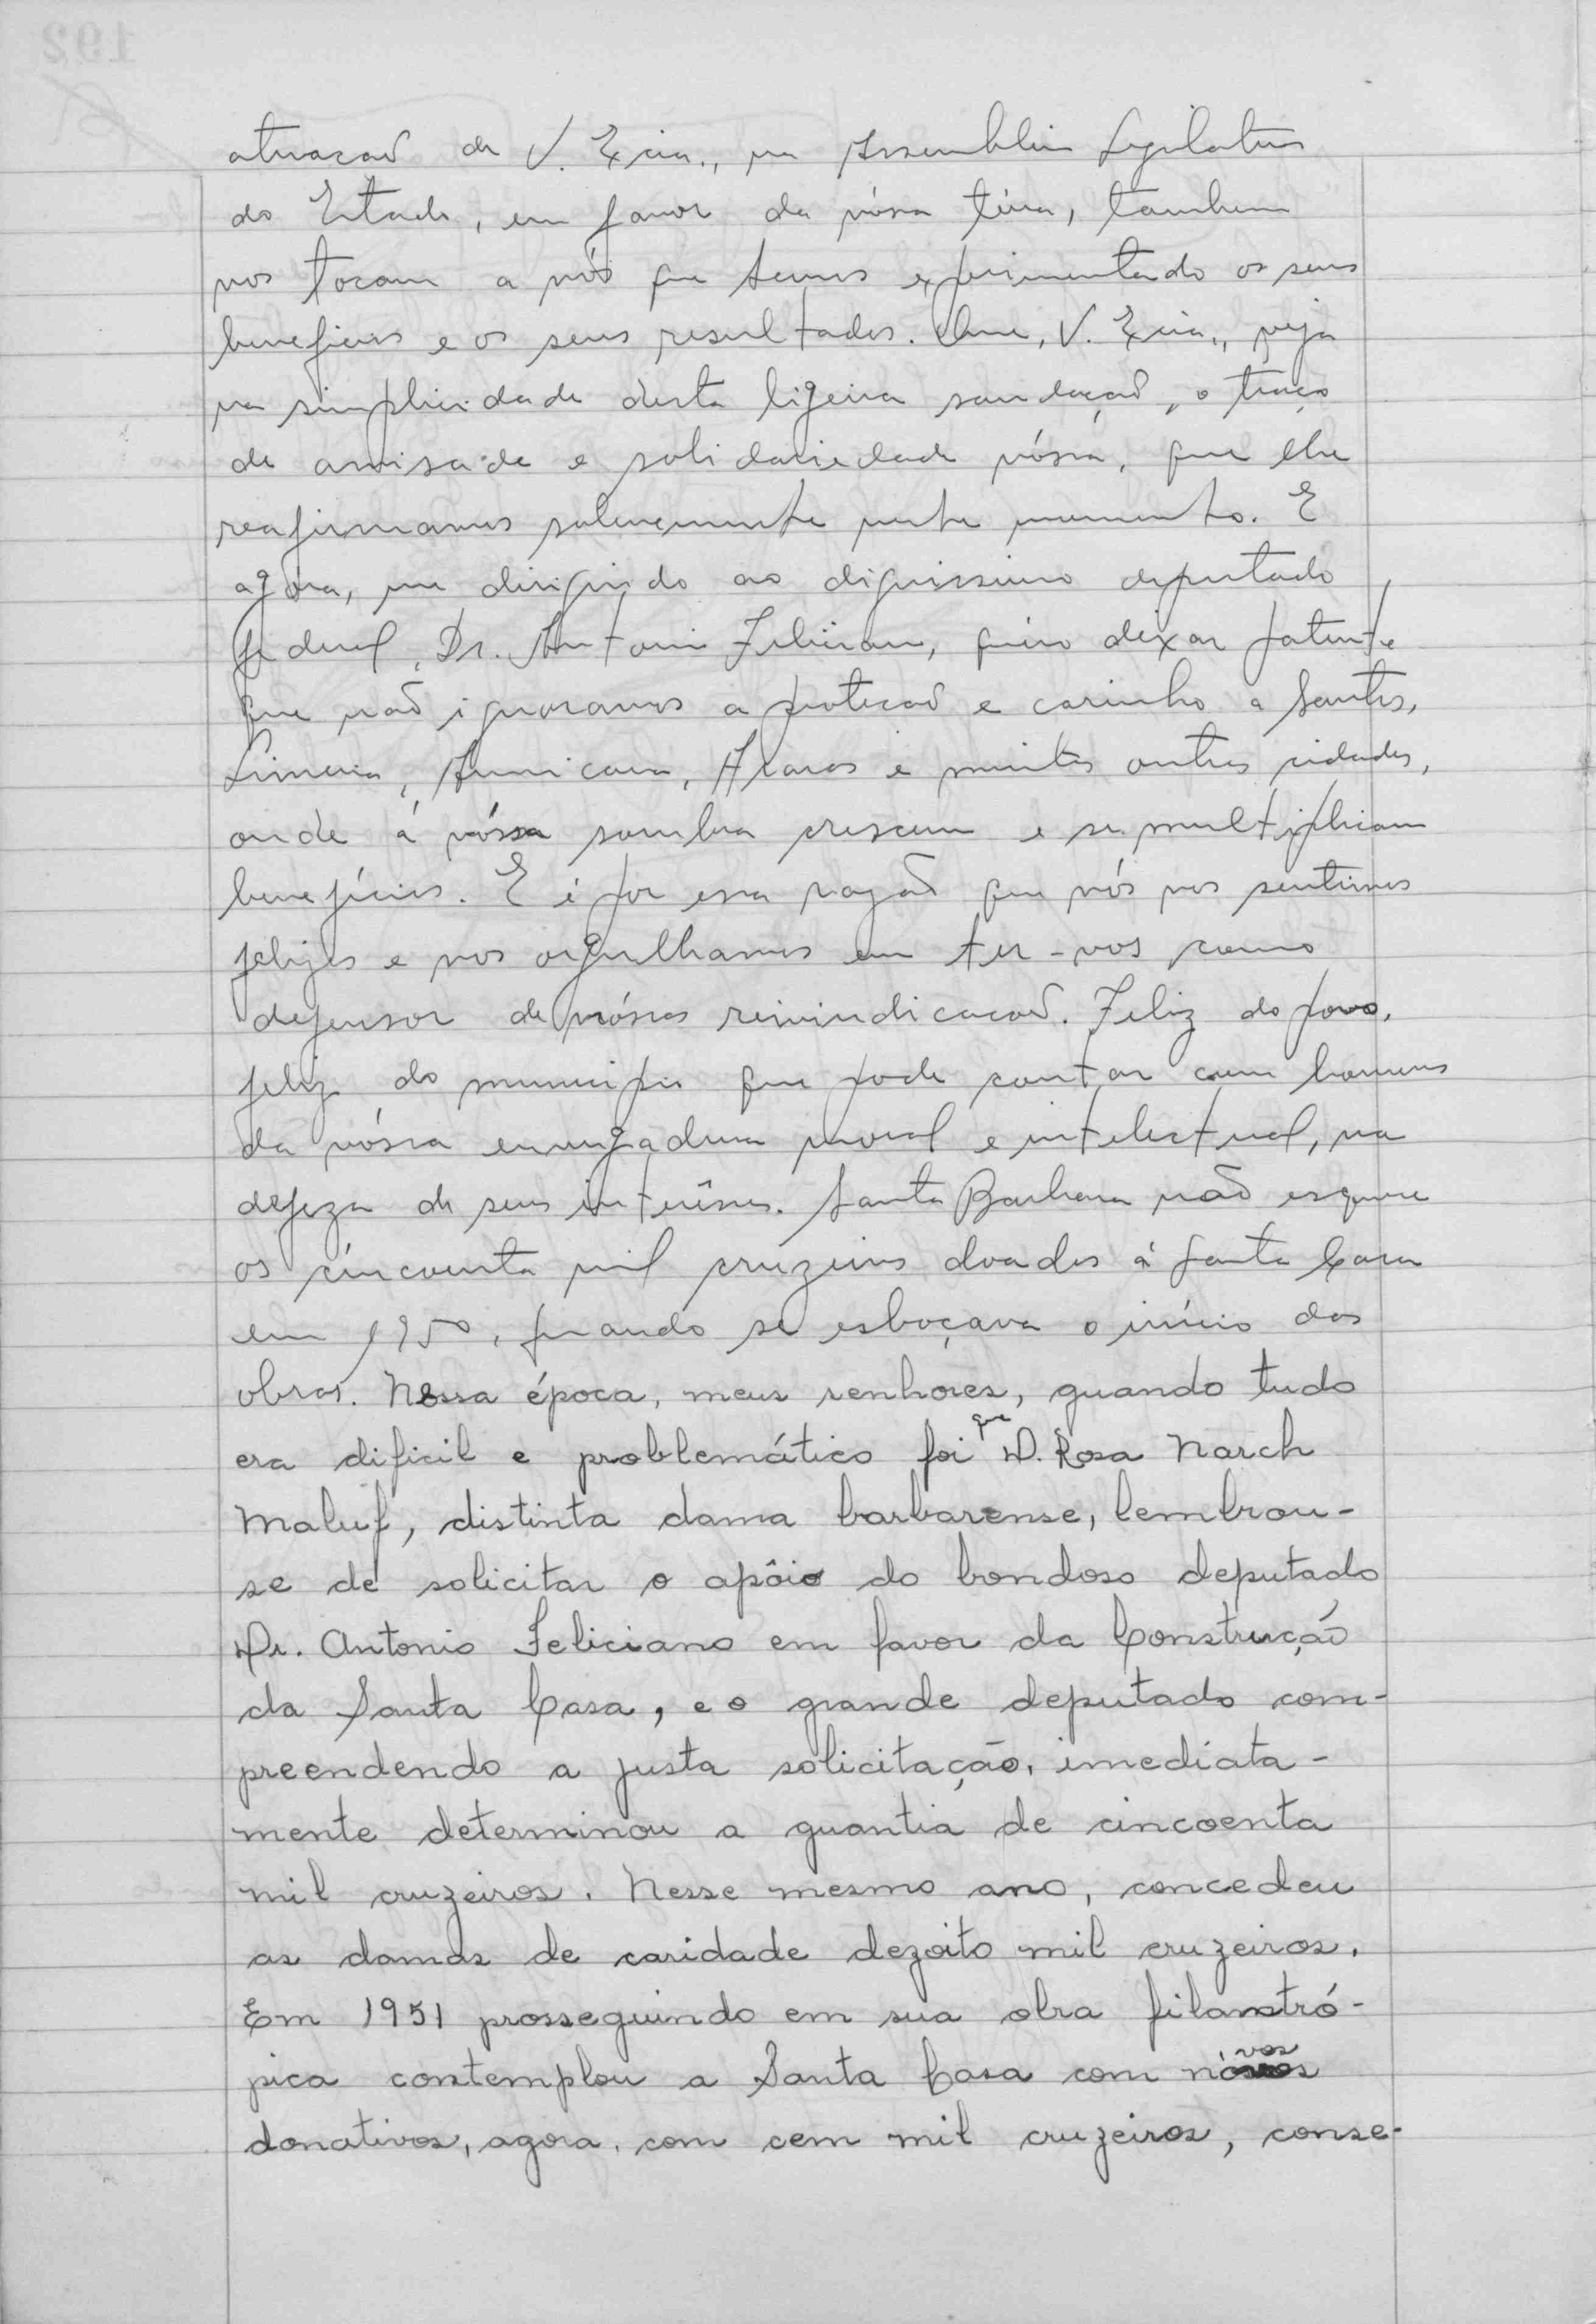 atuacaõ de V. Excia., na Assembleia Legislativa
do Estado, em favor da nóssa térra, tambem
nos tocam a nós que temos experimentado os seus
beneficios e os seus resultados. Que, V. Excia., veja
na simplicidade desta ligeira saudaçaõ, o traço
de amisade e solidariedade nóssa, que lhe
reafirmamos solenemente neste momento. E
agóra, me dirigindo ao dignissimo deputado
federal, Dr. Antonio Feliciano, quéro deixar patente
que naõ ignoramos a protecaõ e carinho a Santos,
Limeira, Americana, Araras e muitas outras cidades,
onde á vóssa sombra crescem e se multiplicam
benefícios. E é por essa razaõ que nós nos sentimos
felizes e nos orgulhamos em ter-vos como
defensor de nóssas reivindicacaõ. Feliz do povo,
feliz do municipio que pode contar com homens
da vóssa envergadura moral e intelectual, na
defeza de seus interêsses. Santa Barbara naõ esquece
os cincoenta mil cruzeiros doados á Santa Casa
em 1950, quando se esboçava o início das
obras. Nessa época, meus senhores, quando tudo
era dificil e problemático foi que D. Rosa Narch
Maluf, distinta dama barbarense, lembrou-
se de solicitar o apôio do bondoso deputado
Dr. Antonio Feliciano em favor da Construção
da Santa Casa, e o grande deputado com-
preendendo a justa solicitação, imediata-
mente determinou a quantia de cincoenta
mil cruzeiros. Nesse mesmo ano, concedeu
as damas de caridade dezoito mil cruzeiros.
Em 1951 prosseguindo em sua obra filantró-
pica contemplou a Santa Casa com nóvos
donativos, agora, com cem mil cruzeiros, conse-